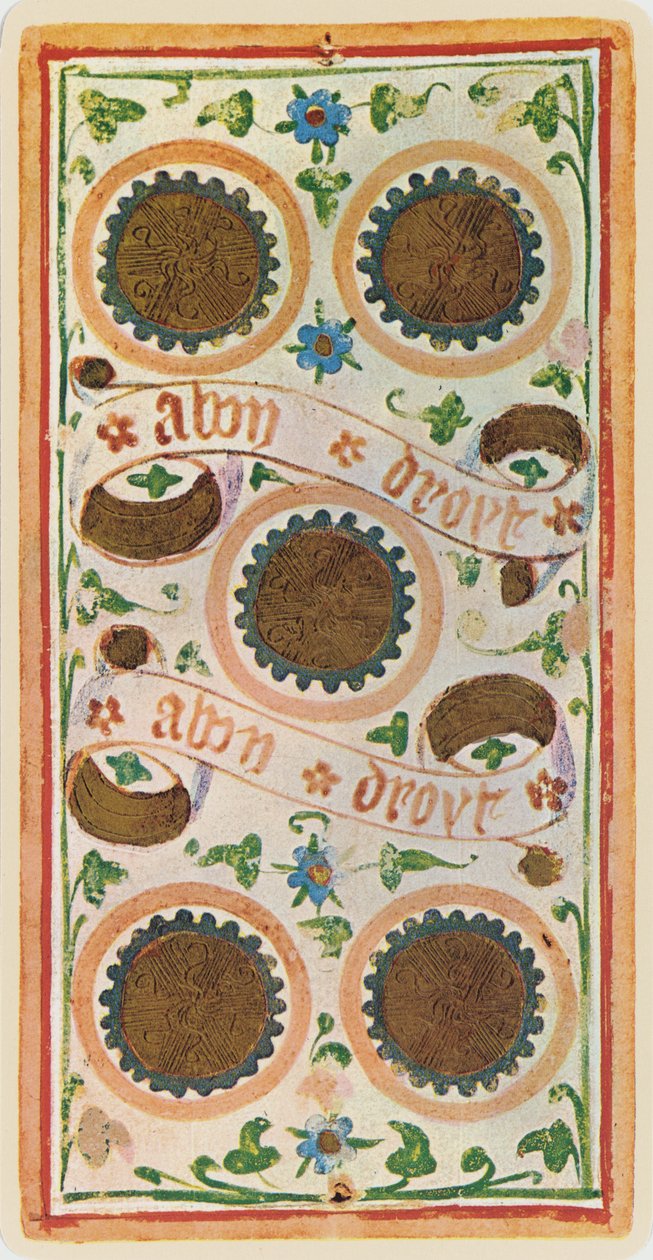 abon droyt
abon droyt